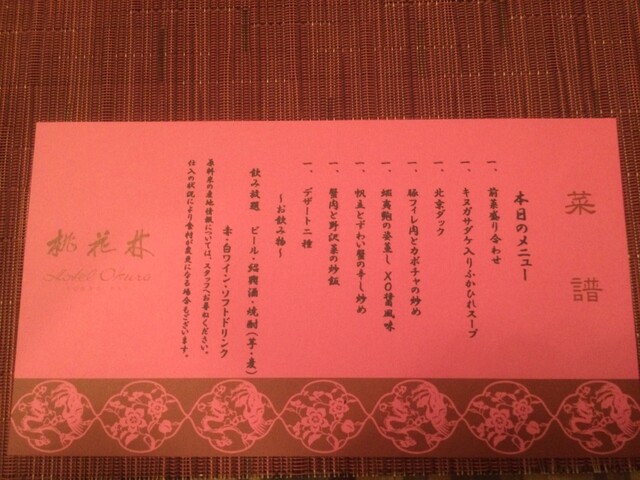 菜譜
本日のメニュー
一、前菜盛り合わせ
一、キヌガサダケ入りふかひれスープ
一、北京ダック
一、豚フィレ肉とカボチャの炒め
一、蝦夷鮑の姿蒸し XO醤風味
一、帆立とずわい蟹の辛し炒め
一、蟹肉と野沢菜の炒飯
一、デザート二種
～お飲み物～
飲み放題 ビール・紹興酒・焼酎(芋・麦)
赤・白ワイン・ソフトドリンク
原料米の産地情報については、スタッフへお尋ねください。
仕入の状況により食材が変更になる場合もございます。
桃花林
Hotel Okura